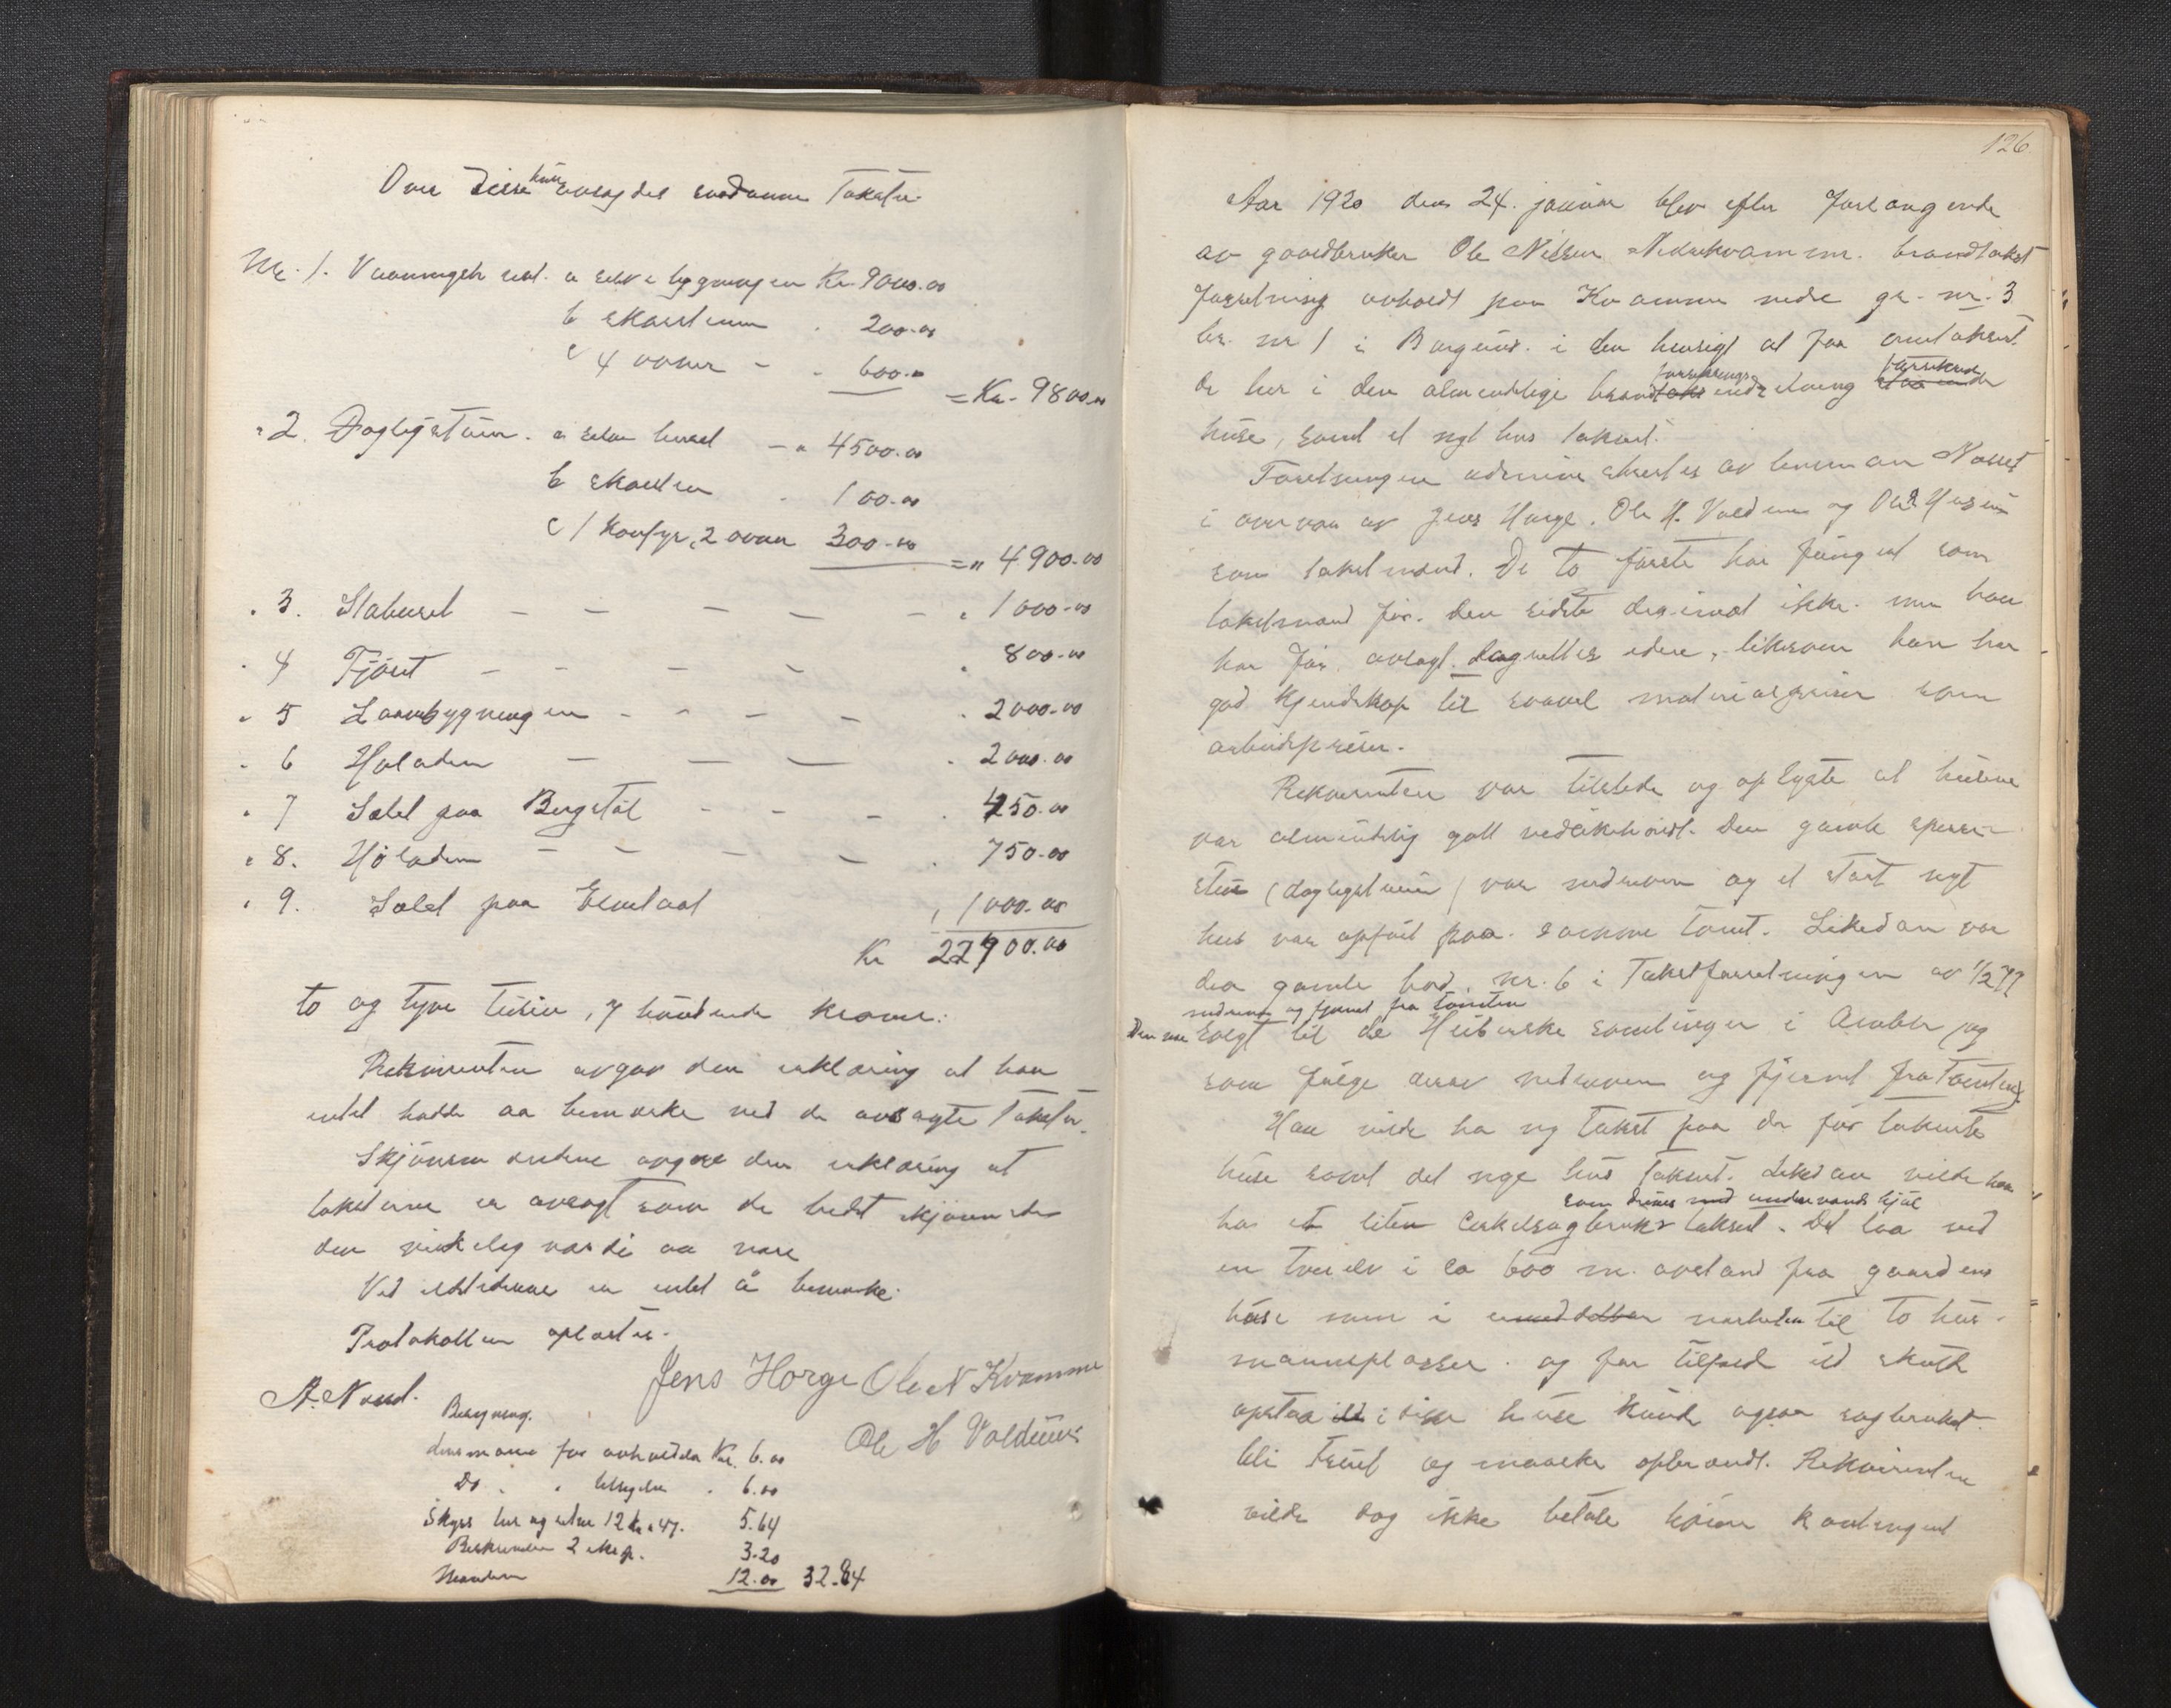 Over disse hus avsagdes saadanne Takster
Nr. 1. Vaaningsh. a selve bygningen Kr. 9000.00
b skorstenen " 200.00
c 4 ovner - " 600.-
= Kr. 9800.00
" 2. Dagligstuen. a selve huset - " 4500.00
b skorsten " 100.00
c 1 komfyr, 2 ovner 300.00
= " 4900.00
" 3. Staburet - - - - - " 1000.00
" 4 Fjöset - - - - " 800.00
" 5 Laavebygningen - - - - " 2000.00
" 6 Høladen - - - " 2000.00
" 7 Sælet paa Bergstöl - - - " 450.00
" 8. Höladen - - - - " 750.00
" 9. Sælet paa " 1000.00
Kr 22700.00
to og tyve tusen, 7 hundrede kroner.
Rekvirenten avgav den erklæring at han
intet hadde aa bemerke ved de avsagte Takster.
Skjönsmændene avgav den erklæring at
taksterne er avsagt som de bedst skjönnede
den virkelig værdi aa være
Ved ildstederne er intet å bemerke.
Protokollen oplæstes.
Jens Horge Ole N Kvamme
Ole H Voldum
Beregning.
Lensmannen for avholdelse Kr. 6.00
Do " " 6.00
Skyss her og retur 12 km a 47. 5.64
Beskrivelse 2 eksp. 3.20
Mændene 12.00 32.84
126.
Aar 1920 den 24. januar blev efter forlangende
av gaardbruker Ole Nilsen Nedrekvamme. brandtakst
forretning avholdt paa Kvamme nedre gr. nr. 3
br. nr 1 i Borgund. i den hensigt at faa omtaksert
de her i den almindelige brand forsikrings indretning forsikrede
huse, samt et nyt hus taksert.
Forretningen administrertes av lensman
i overvær av Jens Horge. Ole H. Voldum og Ole
som takstmænd. De to første har fungert som
takstmænd før. den sidste derimot ikke. men han
har før avlagt lagrettes eden, likesom han har
god kjendskap til saavel materialpriser som
arbeidspriser.
Rekvirenten var tilstede og oplyste at husene
var almindelig godt vedlikeholdt. Den gamle
stue (dagligstuen) var nedreven og et stort nyt
hus var opført paa samme tomt. Likedan var
den gamle nr. 6 i Takstforretningen av
nedreven og fjernet fra tomten
Den var solgt til de Heibergske samlinger i Amble og
som følge derav nedreven og fjernet fra Tomten.
Han vilde ha ny takst paa de før takserte
huse samt det nye hus taksert. Likedan vilde han
som drives med undervands hjul
ha et liten Cirkelsagbruk taksert. Det laa ved
en tverelv i ca 600 m. avstand fra gaardens
huse men i nærheten til to hus-
mannsplasser. og for tilfæld ild skulde
opstaa i disse huse kunde ogsaa sagbruket
bli truet og maaske opbrændt. Rekvirenten
vilde dog ikke betale høiere kontingent